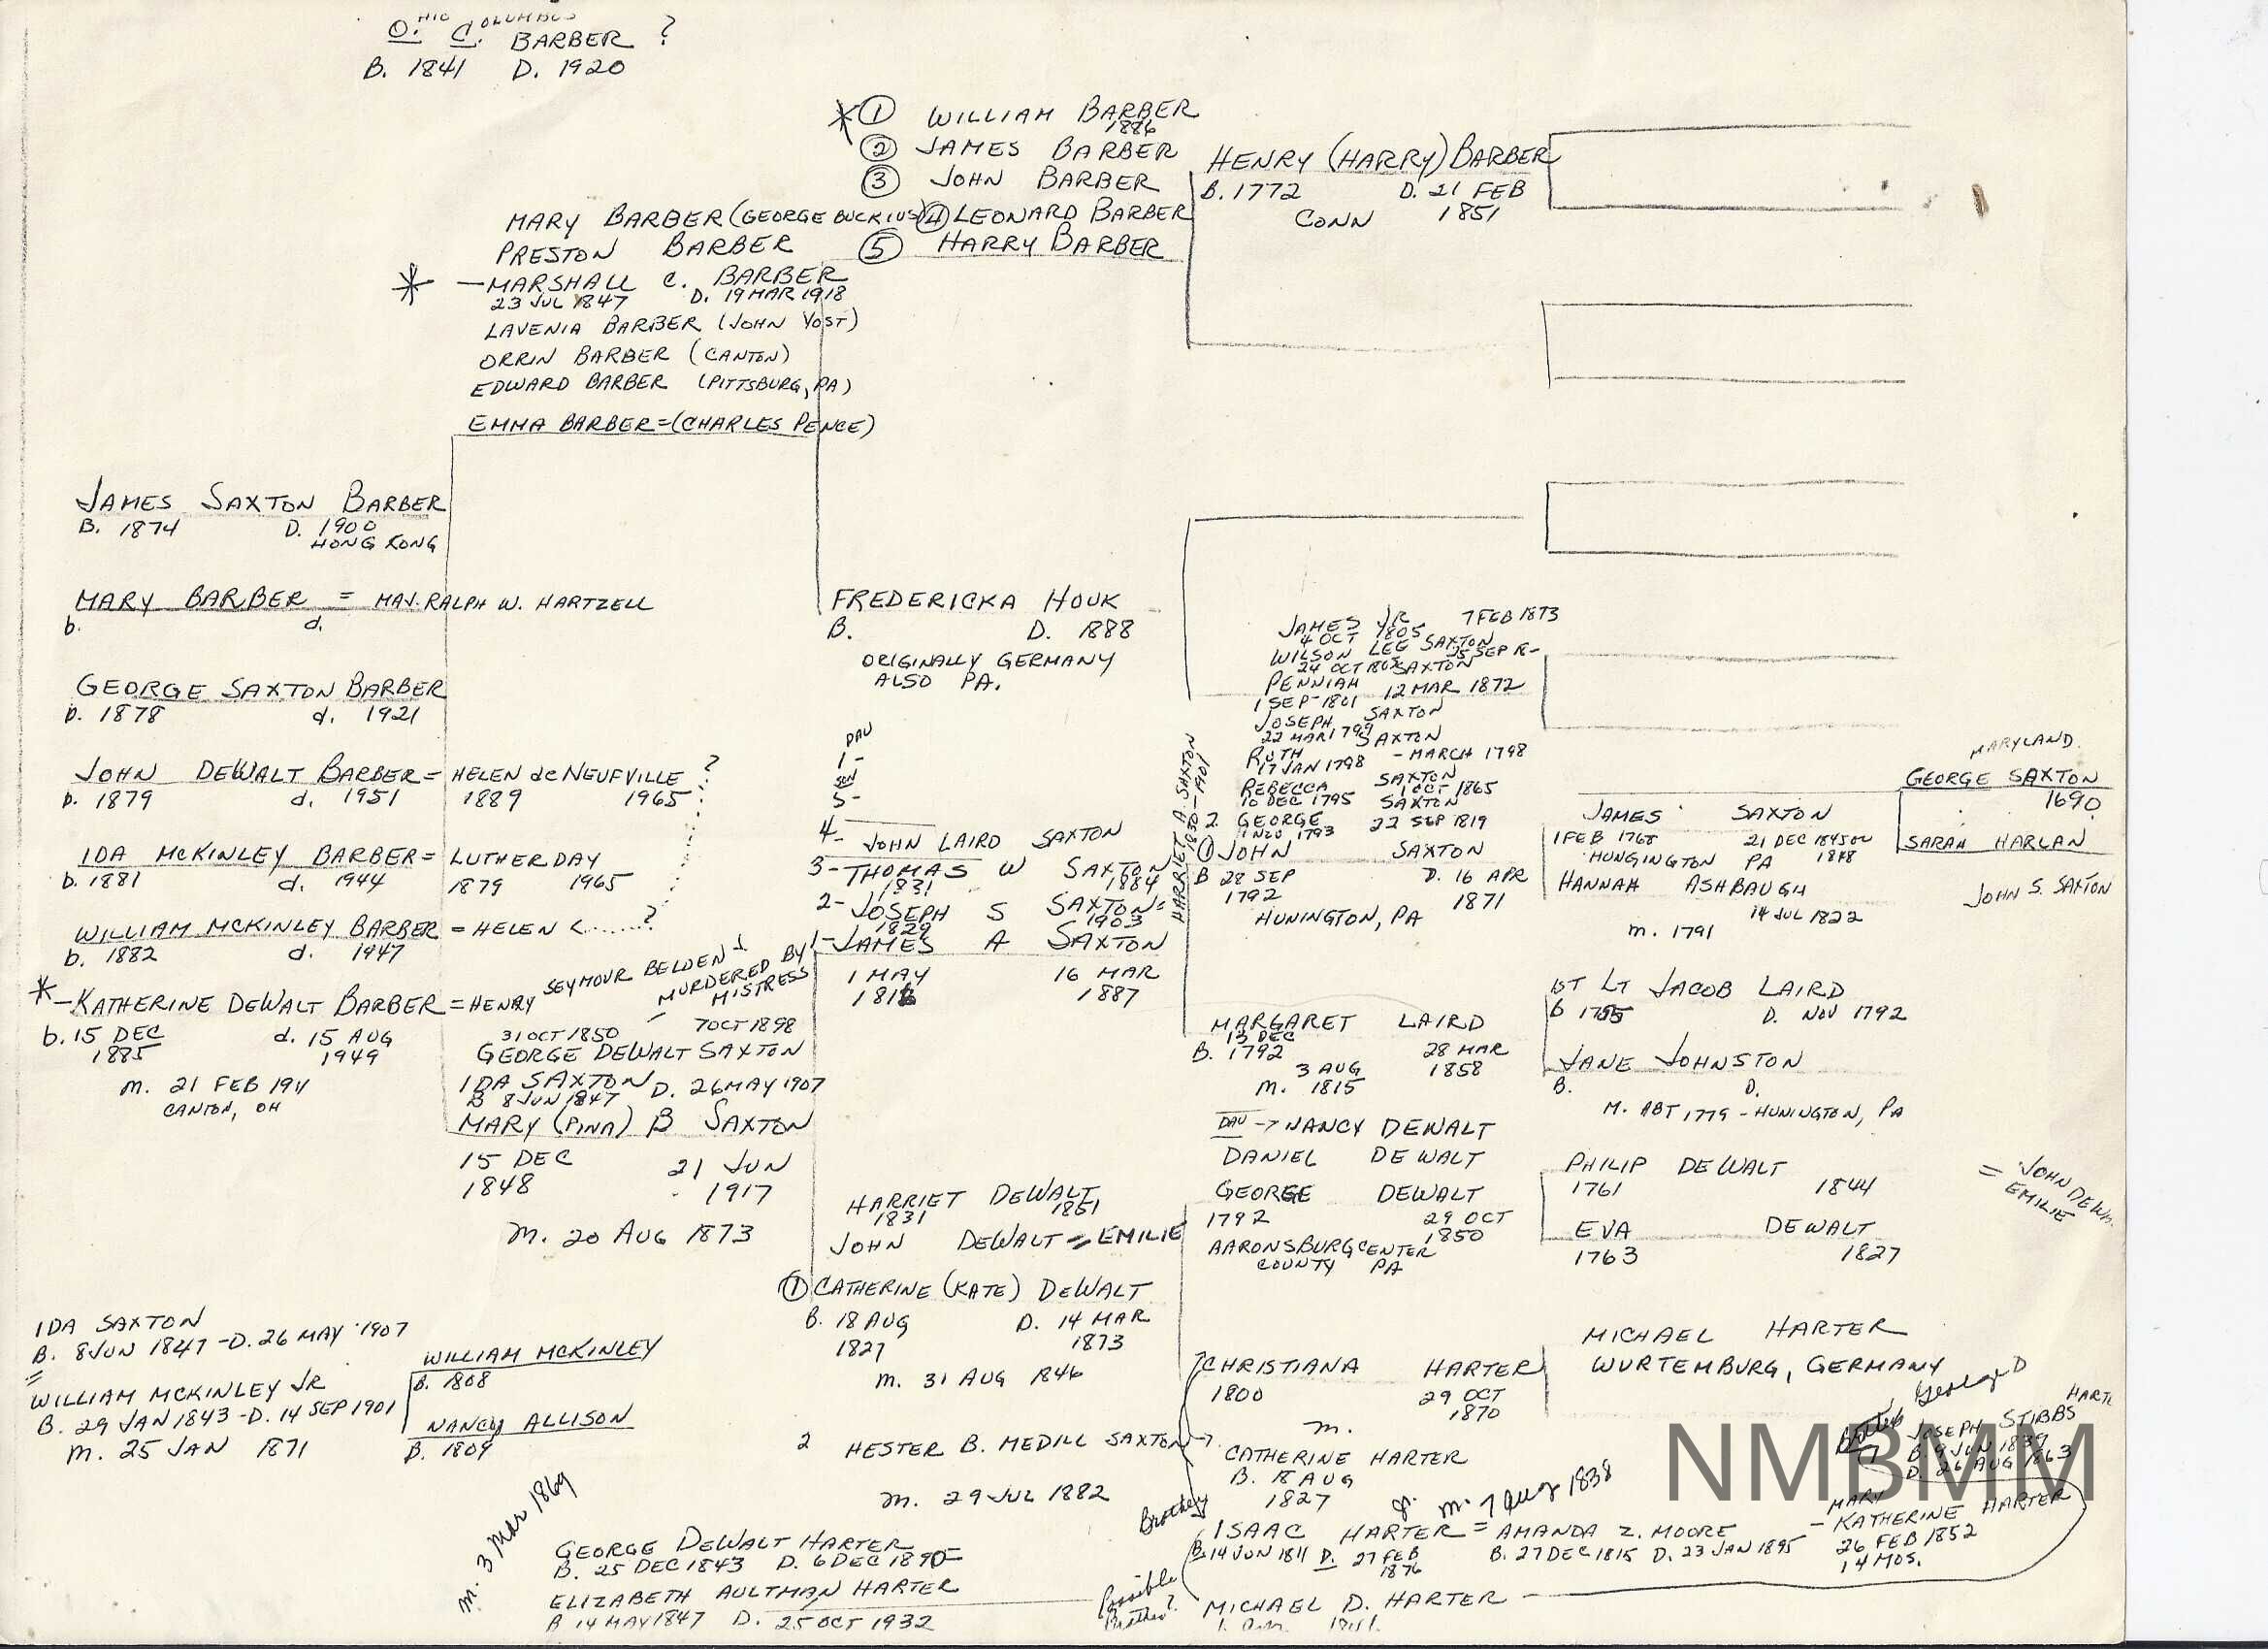 O. HIO C. OLUMBUS BARBER ?
B. 1841 D. 1920
* ① WILLIAM BARBER
1886
② JAMES BARBER
③ JOHN BARBER
④ LEONARD BARBER
⑤ HARRY BARBER
HENRY (HARRY) BARBER
B. 1772 D. 21 FEB
CONN 1851
MARY BARBER (GEORGE BUCKIUS)
PRESTON BARBER
* — MARSHALL C. BARBER
23 JUL 1847 D. 19 MAR 1918
LAVENIA BARBER (JOHN YOST)
ORRIN BARBER (CANTON)
EDWARD BARBER (PITTSBURG, PA)
EMMA BARBER = (CHARLES PENCE)
JAMES SAXTON BARBER
B. 1874 D. 1900
HONG KONG
MARY BARBER = MAJ. RALPH W. HARTZELL
b. d.
GEORGE SAXTON BARBER
b. 1878 d. 1921
JOHN DEWALT BARBER = HELEN deNEUFVILLE ?
b. 1879 d. 1951 1889 1965
IDA MCKINLEY BARBER = LUTHER DAY
b. 1881 d. 1944 1879 1965
WILLIAM MCKINLEY BARBER = HELEN <.......?
b. 1882 d. 1947
* — KATHERINE DEWALT BARBER = HENRY SEYMOUR BELDEN
b. 15 DEC d. 15 AUG
1885 1949
m. 21 FEB 1911
CANTON, OH
MURDERED BY
MISTRESS
31 OCT 1850 — 7 OCT 1898
GEORGE DEWALT SAXTON
IDA SAXTON D. 26 MAY 1907
B 8 JUN 1847
MARY (PINA) B SAXTON
15 DEC 21 JUN
1848 1917
m. 20 AUG 1873
FREDERICKA HOUK
B. D. 1888
ORIGINALLY GERMANY
ALSO PA.
DAU
1-
SON
5-
4-
JOHN LAIRD SAXTON
3- THOMAS W SAXTON
1831 1884
2- JOSEPH S SAXTON
1829 1903
1- JAMES A SAXTON
1 MAY 16 MAR
1816 1887
HARRIET A. SAXTON
1830-1901
JAMES JR 7 FEB 1873
4 OCT 1805
WILSON LEE SAXTON
24 OCT 25 SEP
PENNIAH SAXTON
1 SEP 1801 12 MAR 1872
JOSEPH SAXTON
22 MAR 1799
RUTH SAXTON
17 JAN 1798 - MARCH 1798
REBECCA SAXTON
10 DEC 1795 1 OCT 1865
2. GEORGE SAXTON
1793 22 SEP 1819
① JOHN SAXTON
B 28 SEP D. 16 APR
1792 1871
HUNINGTON, PA
MARYLAND
GEORGE SAXTON
1690
SARAH HARLAN
JOHN S. SAXTON
JAMES SAXTON
1 FEB 1768 21 DEC 1845 OR
HUNGINGTON PA 1848
HANNAH ASHBAUGH
14 JUL 1822
m. 1791
1ST LT JACOB LAIRD
B 1755 D. NOV 1792
JANE JOHNSTON
B. D.
M. ABT 1779 - HUNINGTON, PA
MARGARET LAIRD
13 DEC
B. 1792 28 MAR
3 AUG 1858
m. 1815
DAU → NANCY DEWALT
DANIEL DEWALT
GEORGE DEWALT
1792 29 OCT
1850
AARONSBURG CENTER
COUNTY PA
PHILIP DEWALT
1761 1844
EVA DEWALT
1763 1827
= JOHN DEW
EMILIE
HARRIET DEWALT
1831 1851
JOHN DEWALT = EMILIE
① CATHERINE (KATE) DEWALT
B. 18 AUG D. 14 MAR
1827 1873
m. 31 AUG 1846
2 HESTER B. MEDILL SAXTON →
m. 29 JUL 1882
IDA SAXTON
B. 8 JUN 1847 - D. 26 MAY 1907
=
WILLIAM MCKINLEY JR
B. 29 JAN 1843 - D. 14 SEP 1901
m. 25 JAN 1871
WILLIAM MCKINLEY
B. 1808
NANCY ALLISON
B. 1809
MICHAEL HARTER
WURTEMBURG, GERMANY
CHRISTIANA HARTER
1800 29 OCT
1870
m.
CATHERINE HARTER
B. 18 AUG
1827
Brother
ISAAC HARTER = AMANDA Z. MOORE
m. 7 Aug 1838
B. 14 JUN 1811 D. 27 FEB B. 27 DEC 1815 D. 23 JAN 1895
1876
George D
HART
JOSEPH STIBBS
B. 9 JUN 1839
D. 26 AUG 1863
MARY
- KATHERINE HARTER
26 FEB 1852
14 MOS.
m. 3 Mar 1869
GEORGE DEWALT HARTER
B. 25 DEC 1843 D. 6 DEC 1890 =
ELIZABETH AULTMAN HARTER
B 14 MAY 1847 D. 25 OCT 1932
Possible
Brother?
MICHAEL D. HARTER
NMBMM